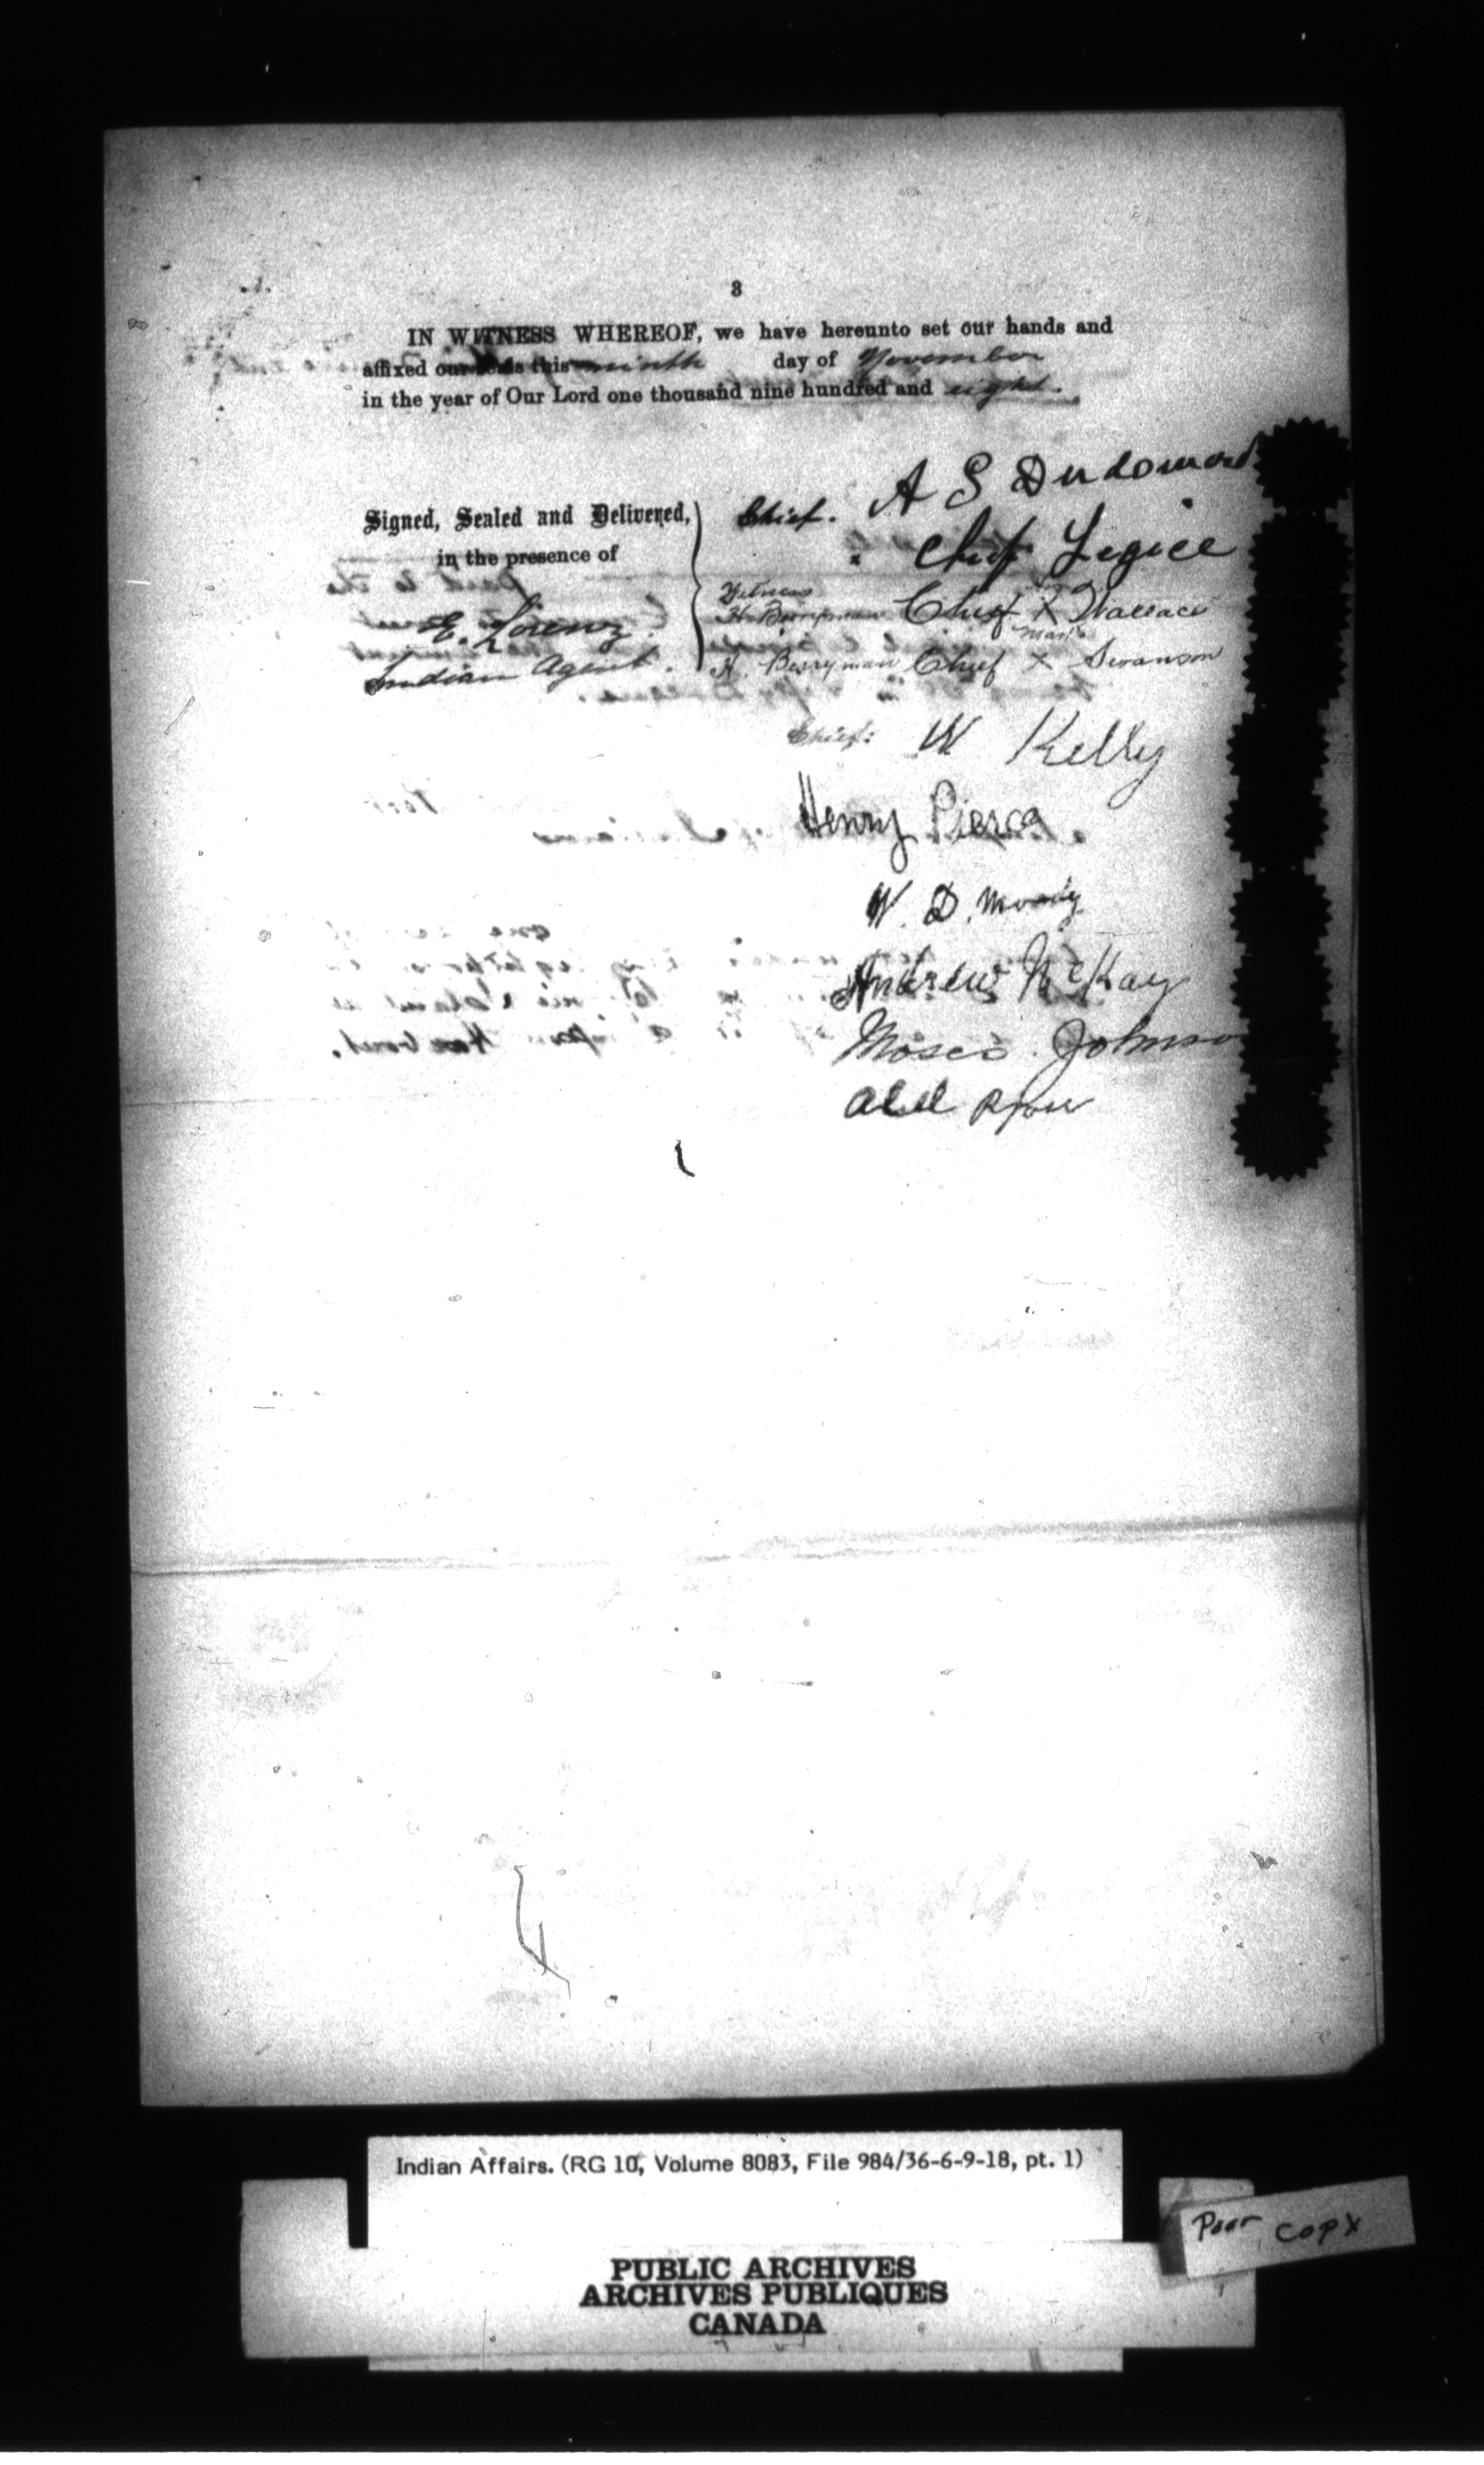 3
IN WITNESS WHEREOF, we have hereunto set our hands and
affixed our seals this ninth day of November
in the year of Our Lord one thousand nine hundred and eight.
Signed, Sealed and Delivered,
in the presence of
E. Lorenz.
Indian Agent.
Chief. A S Dudoward
Chief Legice
Witness
H. Berryman Chief X Wallace
mark
H. Berryman Chief X Swanson
Chief: W Kelly
Henry Pierce
W. D. Moody
Andrew McKay
Moses Johnson
Abel Ryan
Indian Affairs. (RG 10, Volume 8083, File 984/36-6-9-18, pt. 1)
Poor copy
PUBLIC ARCHIVES
ARCHIVES PUBLIQUES
CANADA